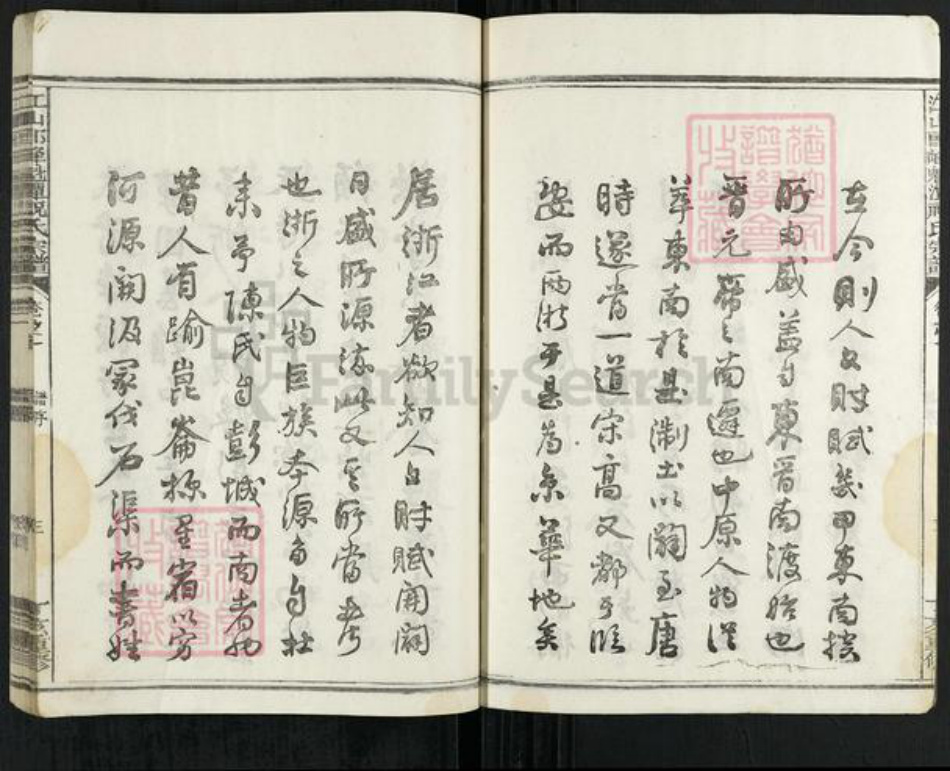 在今則人文財賦幾甲東南揆
所由盛蓋自東晉南渡始也
晉元帝之南遷也中原人物從
萃東南於是漸土以闢至唐
時遂當一道宋高又都于臨
安而兩浙于是為京華地矣
居浙江者欲知人文財賦開闢
日盛所源流此又其所當考
也浙之人物巨族本源多自杜
來予陳氏自彭城而南者也
昔人有踰崑崙探星宿以窮
河源闕汲冢伐石渠而書姓
FamilySearch